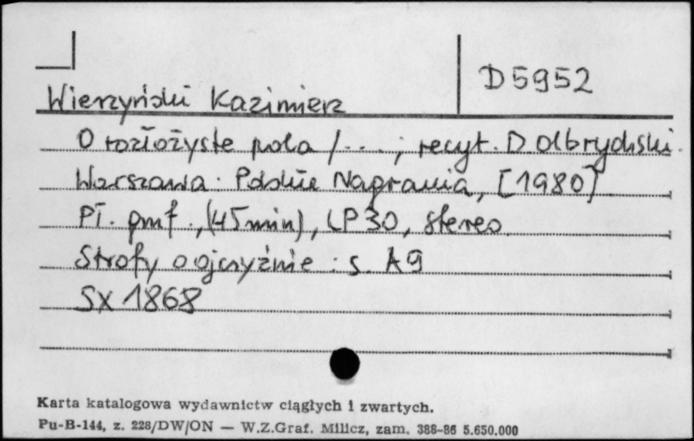 D 5952
Wierzyński Kazimierz
O rozłożyste pola / ... ; recyt. D Olbrychski.
Warszawa : Polskie Nagrania, [1980]
Pł. gmf., (45 min), LP 30, stereo.
Strofy o ojczyźnie : s. A9
SX 1868
Karta katalogowa wydawnictw ciągłych i zwartych.
Pu-B-144, z. 228/DW/ON — W.Z.Graf. Milicz, zam. 388-86 5.650.000